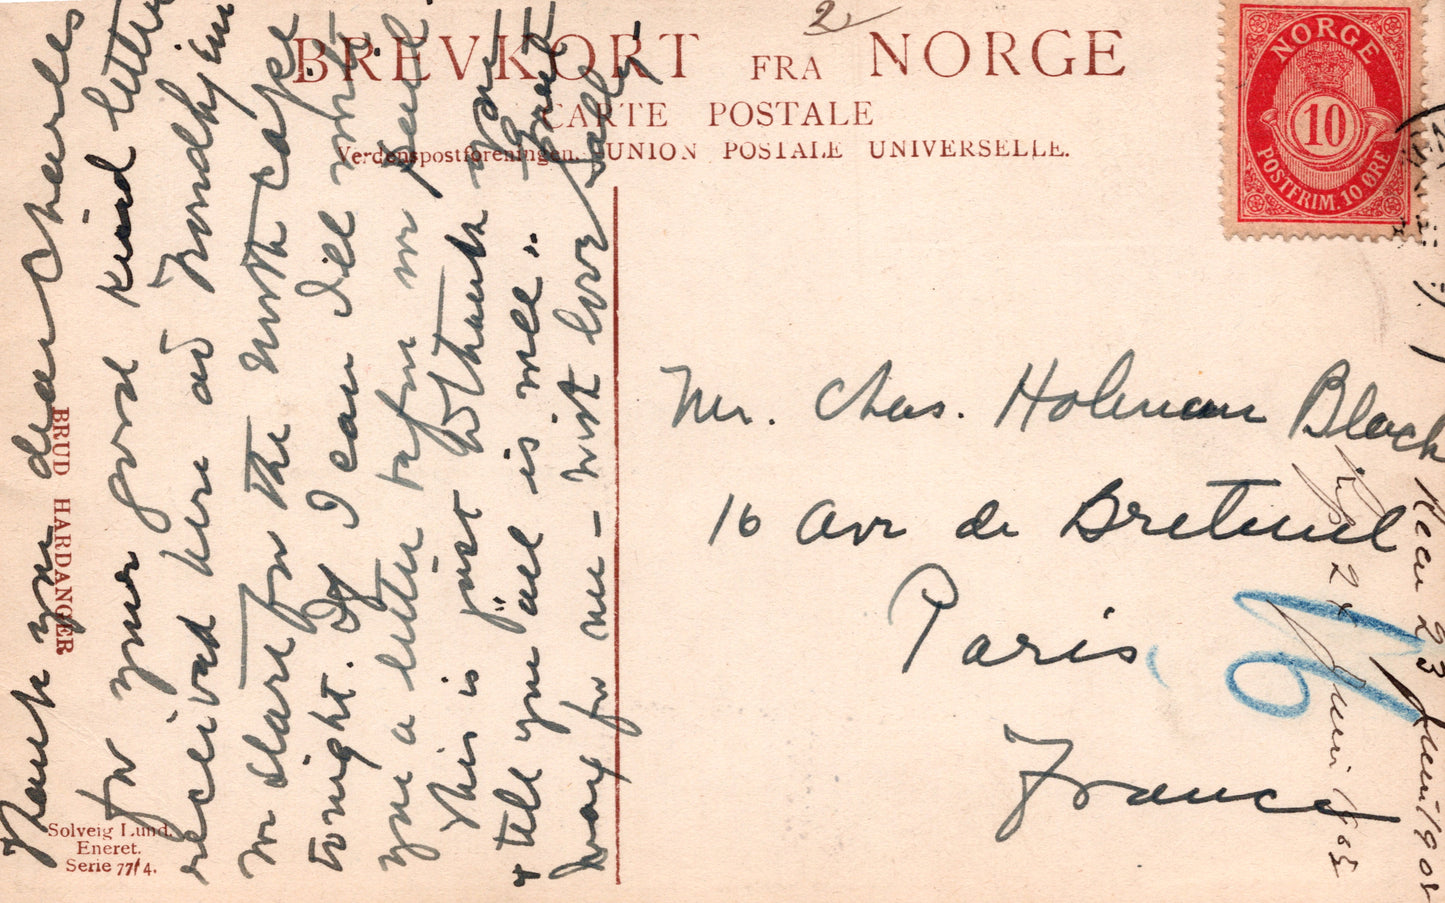 2
BREVKORT FRA NORGE
CARTE POSTALE
Verdenspostforeningen. UNION POSTALE UNIVERSELLE.
NORGE
10
POSTFRIM. 10 ØRE
Thank you dear Charles
for your good kind letter
received here at Trondhjem
we start for the North Cape
tonight. If I can I'll write
you a letter before we
This is just to thank you
& tell you all is well.
away for me – with love Sally –
Mr. Chas. Holman Black
16 Ave de Breteuil
Paris
France
6
Recu 23 Juin 1905
Rep 24 Juin 1905
BRUD HARDANGER
Solveig Lund.
Eneret.
Serie 77/4.